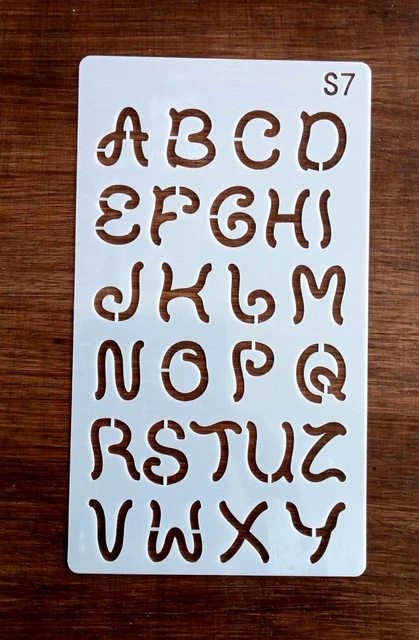 S7
A B C D
E F G H I
J K L M
N O P Q
R S T U Z
V W X Y